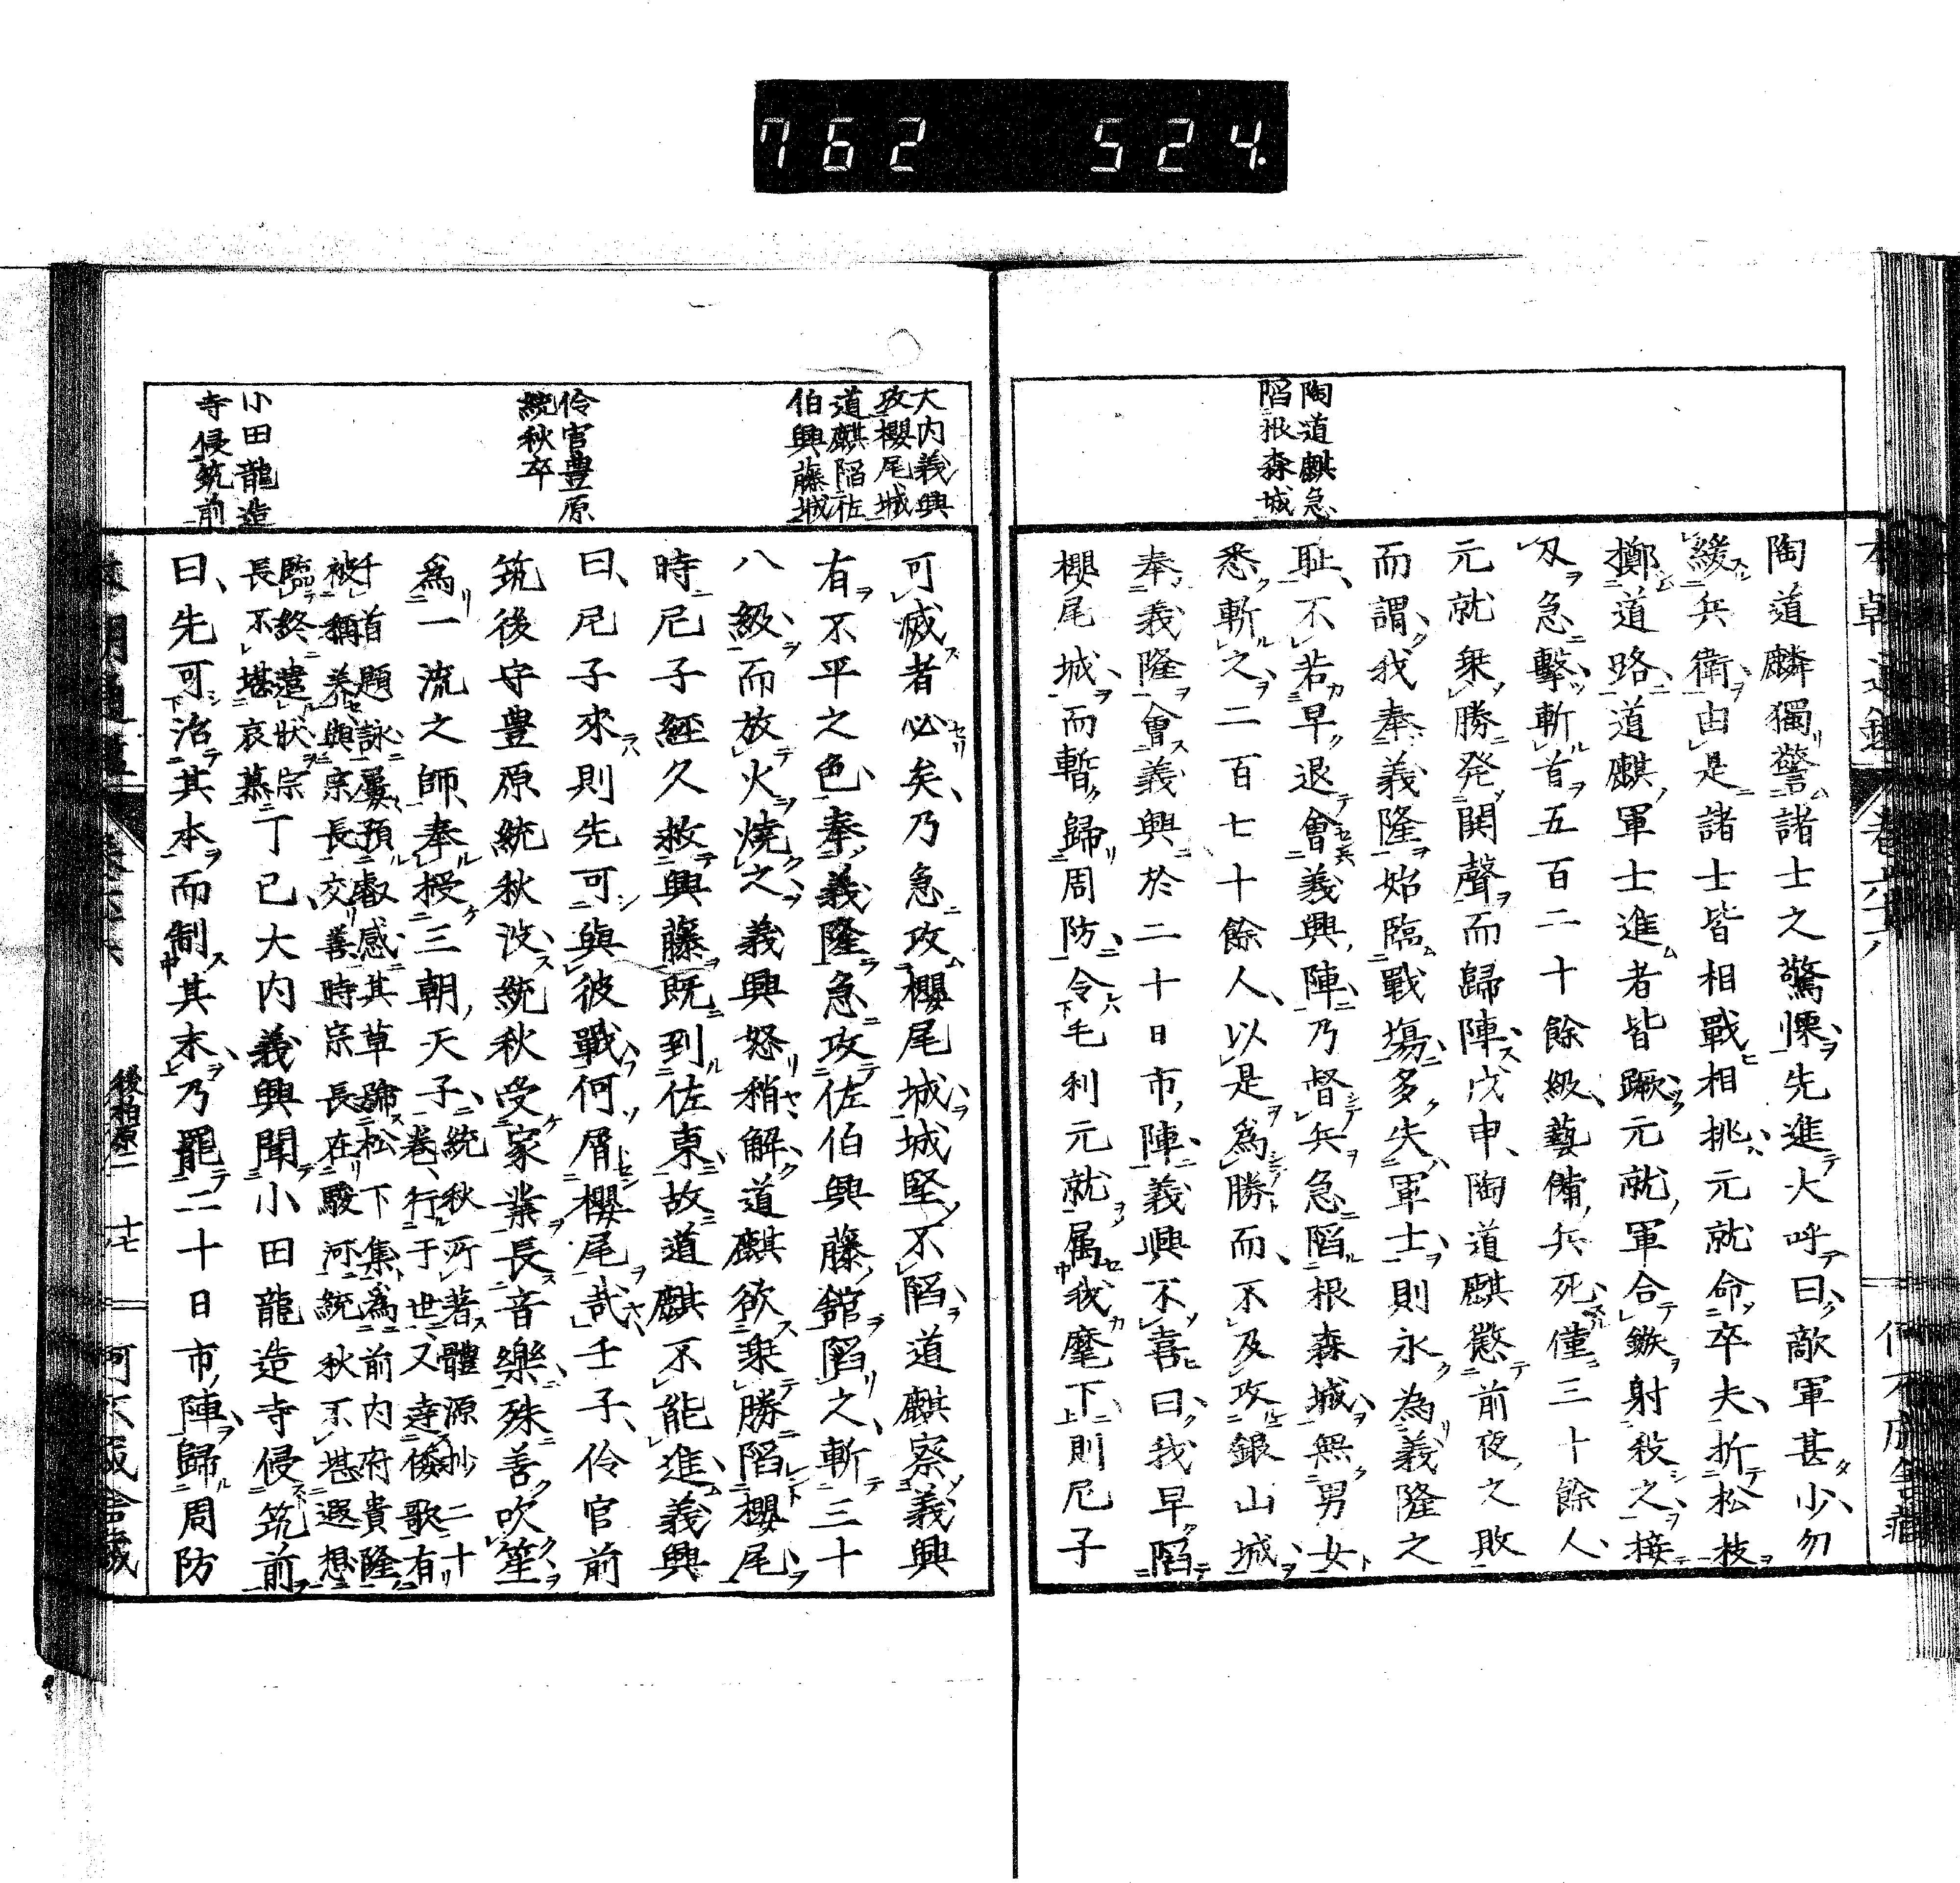 762 524.
陶道麒急
陷根森城
陶道麟獨警諸士之驚慄先進大呼曰敵軍甚少勿
緩兵衛由是諸士皆相戰相挑元就命卒夫折松枝
擲道路道麒軍士進者皆蹶元就軍合鏃射殺之接
刄急擊斬首五百二十餘級藝備兵死僅三十餘人
元就衆勝発鬨聲而歸陣戊申陶道麒懲前夜之敗
而謂我奉義隆始臨戰場多失軍士則永為義隆之
耻不若早退會義興陣乃督兵急陷根森城無男女
悉斬之二百七十餘人以是爲勝而不及攻銀山城
奉義隆會義興於二十日市陣義興不喜曰我早陷
櫻尾城而暫歸周防令毛利元就属我麾下則尼子
大内義興
攻櫻尾城
道麒陷佐
伯興藤城
伶官豊原
統秋卒
小田龍造
寺侵筑前
可威者必矣乃急攻櫻尾城城堅不陷道麒察義興
有不平之色奉義隆急攻佐伯興藤舘陷之斬三十
八級而放火燒之義興怒稍解道麒欲乗勝陷櫻尾
時尼子經久救興藤既到佐東故道麒不能進義興
曰尼子來則先可與彼戰何屑櫻尾哉壬子伶官前
筑後守豊原統秋沒統秋受家業長音樂殊善吹笙
爲一流之師奉授三朝天子統秋所著體源抄二十
卷行于世又達倭歌有
千首題詠屢預叡感其草號松下集為前内府貴隆
被稱美與宗長交善時宗長在駿河統秋不堪遐想
臨終遣状宗
長不堪哀慕丁已大内義興聞小田龍造寺侵筑前
曰先可治其本而制其末乃罷二十日市陣歸周防
後柏原二 十七